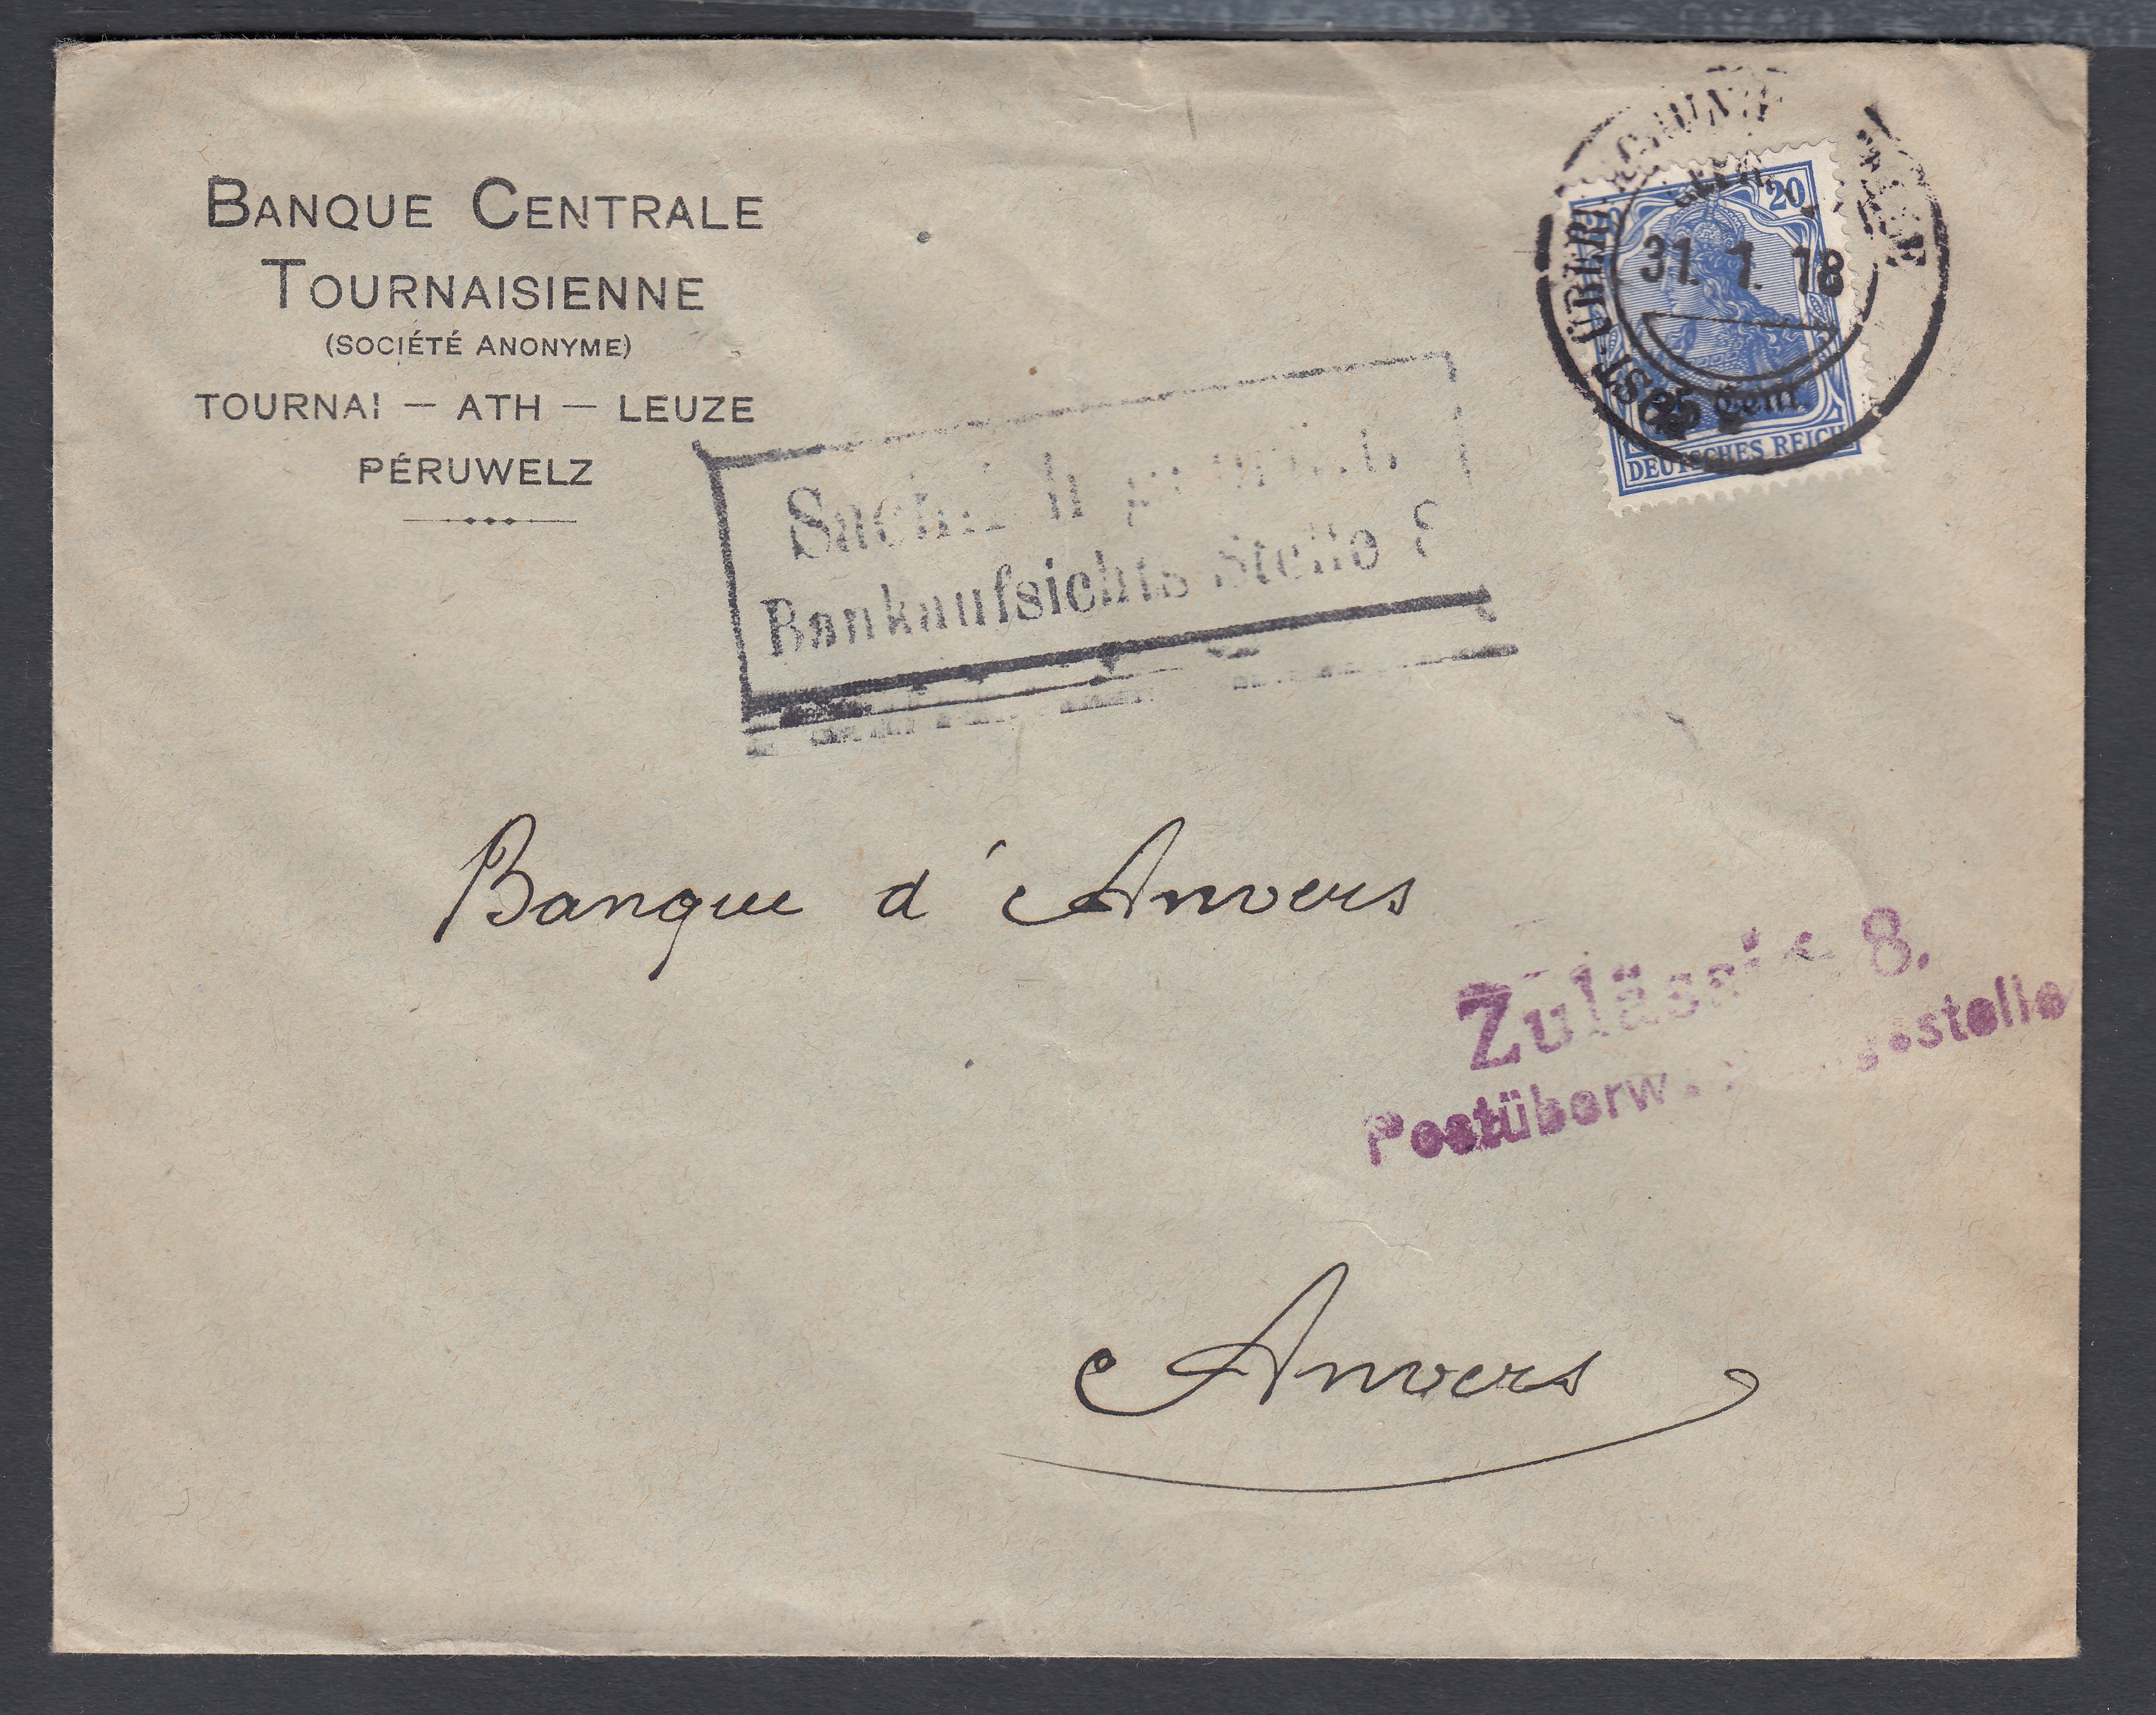 BANQUE CENTRALE
TOURNAISIENNE
(SOCIÉTÉ ANONYME)
TOURNAI — ATH — LEUZE
PÉRUWELZ
20
31. 1. 18
25 Cent.
DEUTSCHES REICH
Bankaufsichts-Stelle 8
Banque d'Anvers
Zulässig 8.
Anvers